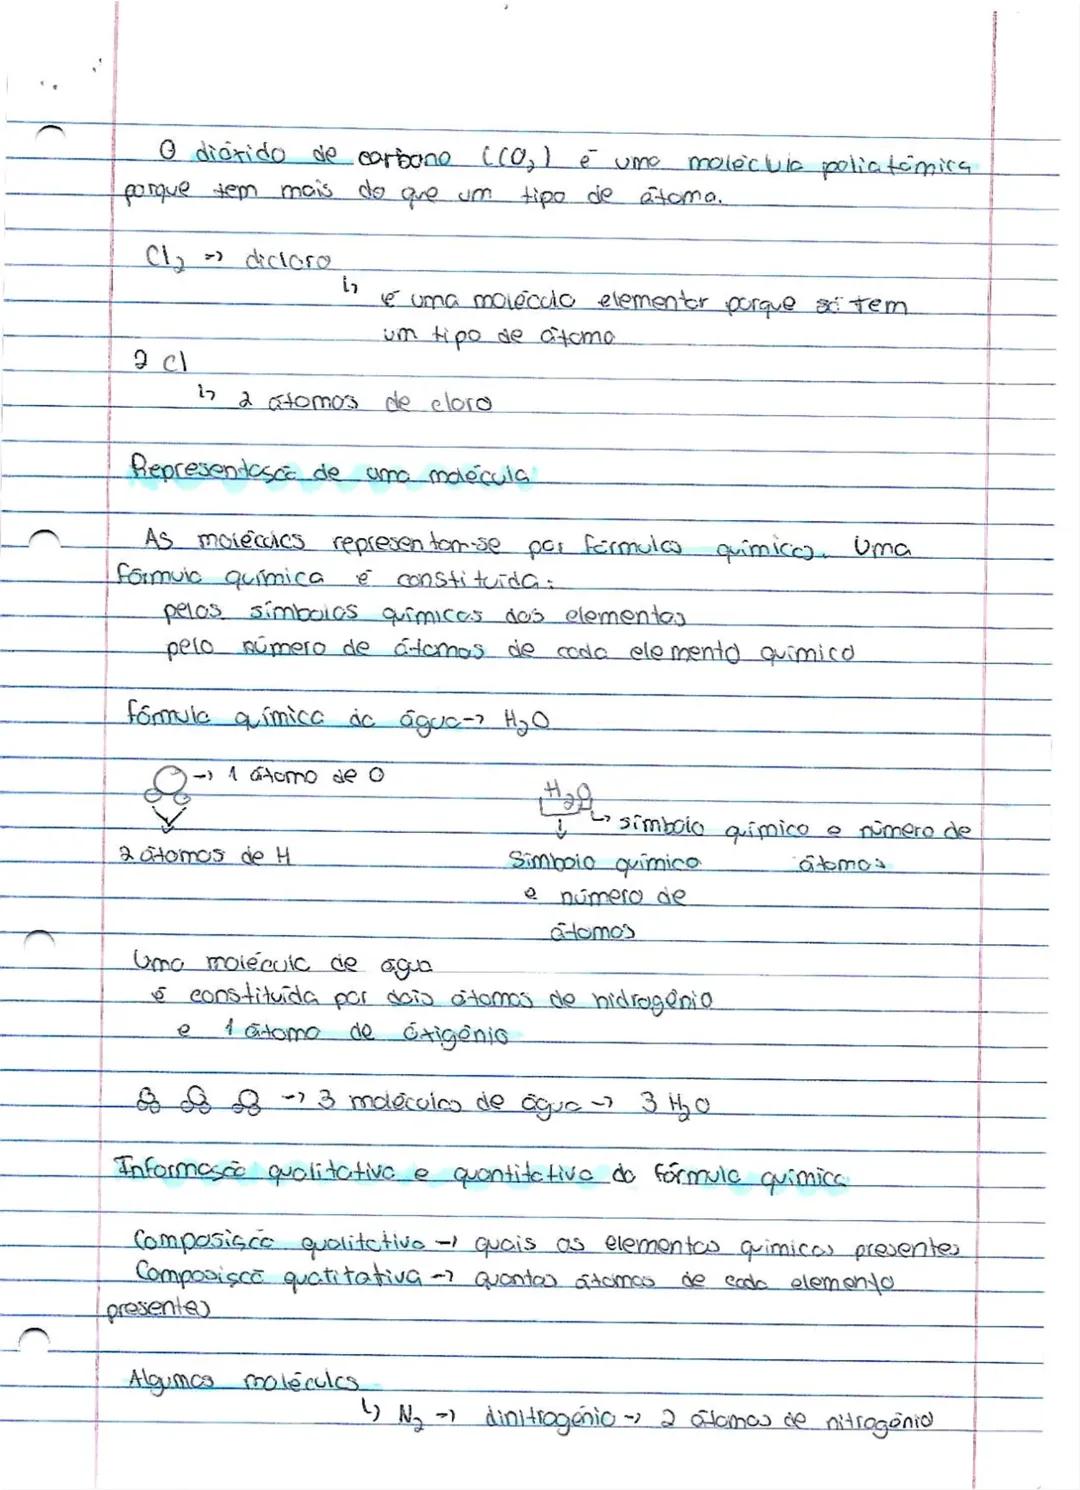 O dióxido de carbono (CO₂) é uma molécula poliatómica
porque tem mais do que um tipo de átomo.
Cl₂ -> dicloro
↳ é uma molécula elementar porque só tem
um tipo de átomo
2 Cl
↳ 2 átomos de cloro
Representasão de uma molécula
As moléculas representam-se por fórmulas químicas. Uma
fórmula química é constituída:
pelos símbolos químicos dos elementos
pelo número de átomos de cada elemento químico
fórmula química da água -> H₂O
-> 1 átomo de O
H₂O
↳ símbolo químico e número de
átomos
2 átomos de H
Símbolo químico
e número de
átomos
Uma molécula de água
é constituída por dois átomos de hidrogénio
e 1 átomo de óxigénio
-> 3 moléculas de água -> 3 H₂O
Informasão qualitativa e quantitativa da fórmula química
Composisão qualitativa -> quais os elementos químicos presentes
Composisão quatitativa -> quantos átomos de cada elemento
presentes
Algumas moléculas
↳ N₂ -> dinitrogénio -> 2 átomos de nitrogénio